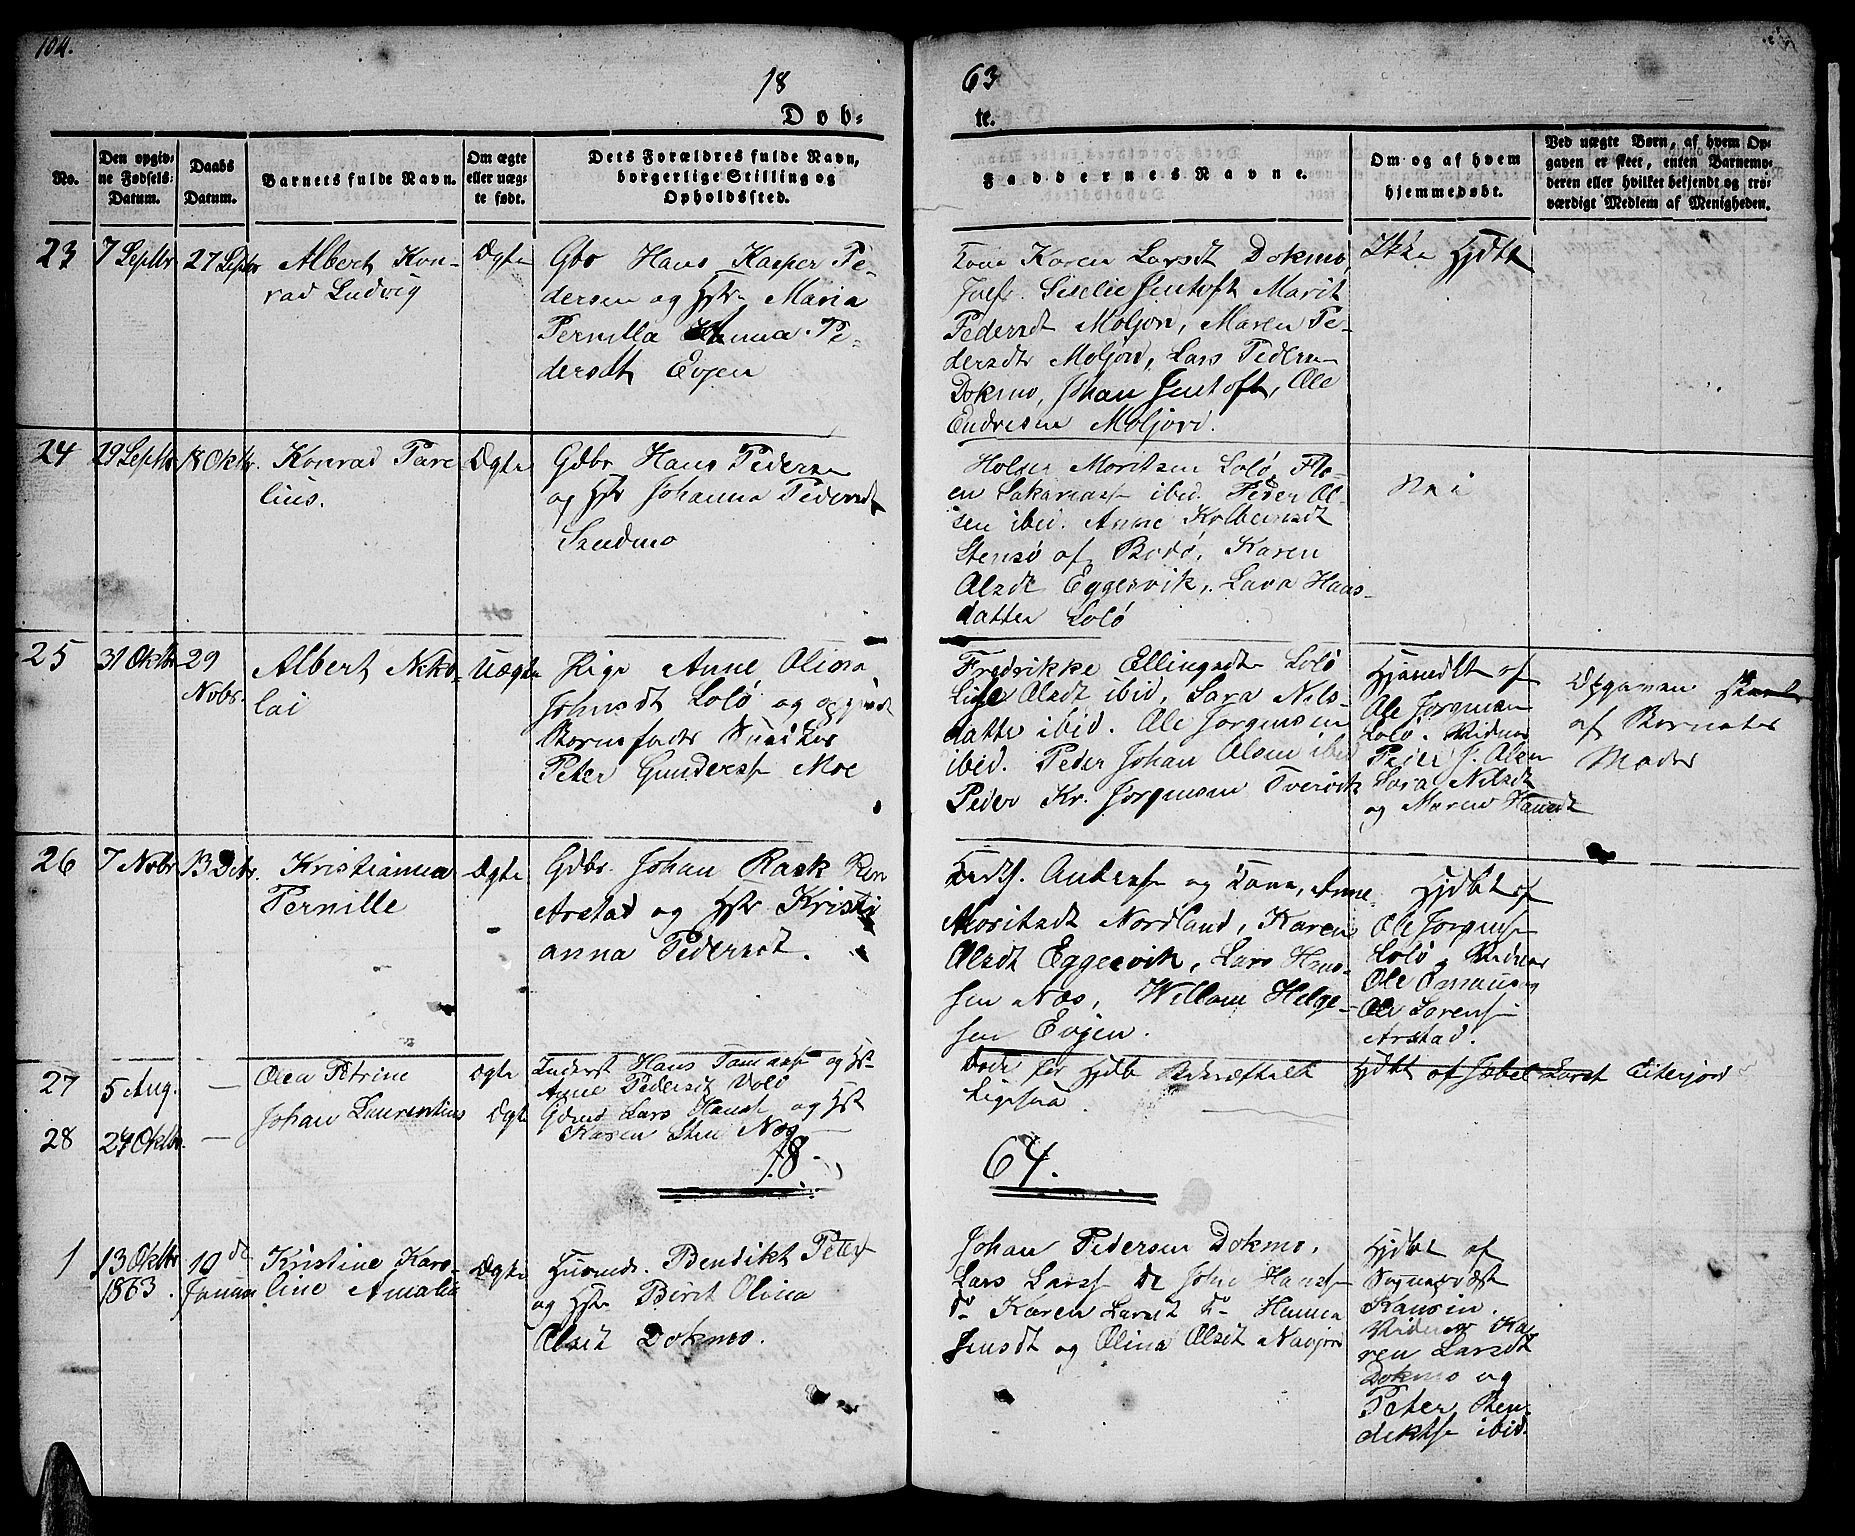 104.
18
63
Døb-
te.
No.
Den opgiv-
ne Fødsels-
Datum.
Daabs
Datum.
Barnets fulde Navn.
Om ægte
eller uæg-
te født.
Dets Forældres fulde Navn,
borgerlige Stilling og
Opholdssted.
Faddernes Navne.
Om og af hvem
hjemmedøbt.
Ved uægte Børn, af hvem Op-
gaven er skeet, enten Barnemo-
deren eller hvilket bekjendt og tro-
værdigt Medlem af Menigheden.
23
7 Septbr
27 Septbr
Albert Kon-
rad Ludvig
Ægte
Gbr Hans Kasper Pe-
dersen og Hstr Maria
Pernilla Anna Pe-
dersdt Evjen
Kone Karen Larsdt Dokmo,
Jomfr. Sisilie Jentoft Marit
Pedersdt Moljord, Maren Pe-
dersdtr Moljord, Lars Pedersen
Dokmo, Johan Jentoft, Ole
Endresen Moljord.
Ikke Hjdbt
24
29 Septbr
18 Oktbr.
Konrad Pare
lius.
Ægte
Gdbr Hans Pedersen
og Hstr Johanna Pedersdt
Sandmo
Holger Moritsen Solø,
Sakariass ibid. Peder Ol-
sen ibid. Anne Kolbeinsdt
Stensø af Bodø, Karen
Olsdt Eggesvik, Lava Hans-
datter Solø
Nei
25
31 Oktbr
29
Nobr.
Albert Niko-
lai
Uægte
Pige Anne Olina
Johnsdt Solø og opgivet
Barnefader
Peter Gunderss Moe
Fredrikke Ellingsdtr Solø
Olsdt ibid, Sara Nils-
datter ibid. Ole Jørgensen
ibid. Peder Johan Olsen ibid
Peder Kr. Jørgensen Tvervik
Hjemdbt af
Ole Jørgensen
Solø. Vidner
Peder J. Olsen
Sara Nilsdt
og Maren Hansdt
Opgaven skeet
af Barnets
Moder
26
7 Nobr
13 Debr.
Kristianna
Pernille
Ægte
Gdbr. Johan Rask
Arstad og Hstr Kristi
anna Pedersdt.
Anderss og Kone, Anne
Moritsdt Nordland, Karen
Olsdt Eggesvik, Lars Hans-
sen Næs, Willum Helge-
sen Evjen.
Hjdbt af
Ole Jørgenss
Solø, Vidner
Ole Emausen
Ole Sørenss
Arstad.
27
5 Aug.
—
Olea Petrine
Ægte
Inderst Hans Tomass og Hst
Anne Pedersdt Solø
Døde før Hjdb Bekræftelse
Hjdbt af Isabel Larsdt Eiterjord
28
24 Oktbr.
—
Johan Laurentius
Ægte
Gdmd Lars Hanss og Hst
Karen Næs
18
64.
1
13 Oktbr
1863.
10de
Januar
Kristine Karo-
line Amalia
Ægte
Husmd. Bendikt Peterss
og Hstr Birit Olina
Olsdt Dokmo.
Johan Pedersen Dokmo,
Lars Larss do John Hanss
do Karen Larsdt do Hanna
Jensdt og Olina Olsdt Navjord
Hjdbt af
Sognepræst
Kansin.
Vidner Ka-
ren Larsdt
Dokmo og
Peter Ben-
diktss ibid.